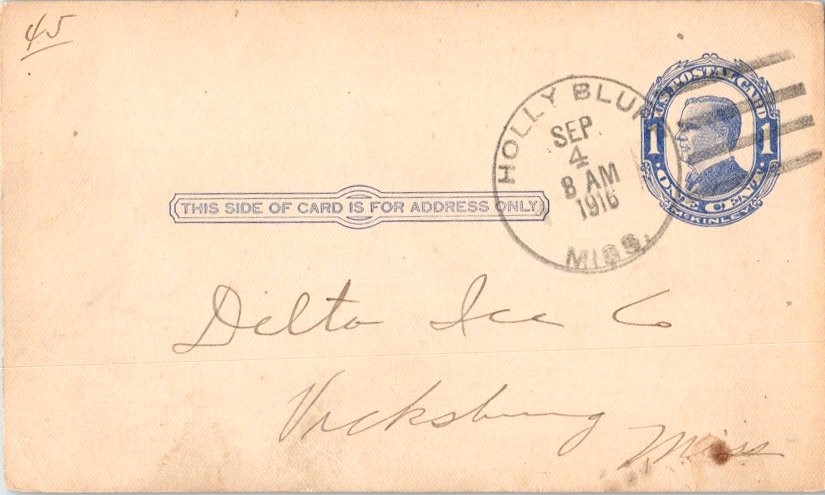 45
HOLLY BLUFF
SEP
4
8 AM
1916
MISS.
U.S. POSTAL CARD
1 1
ONE CENT
McKINLEY
THIS SIDE OF CARD IS FOR ADDRESS ONLY
Delta Ice Co
Vicksburg
Miss